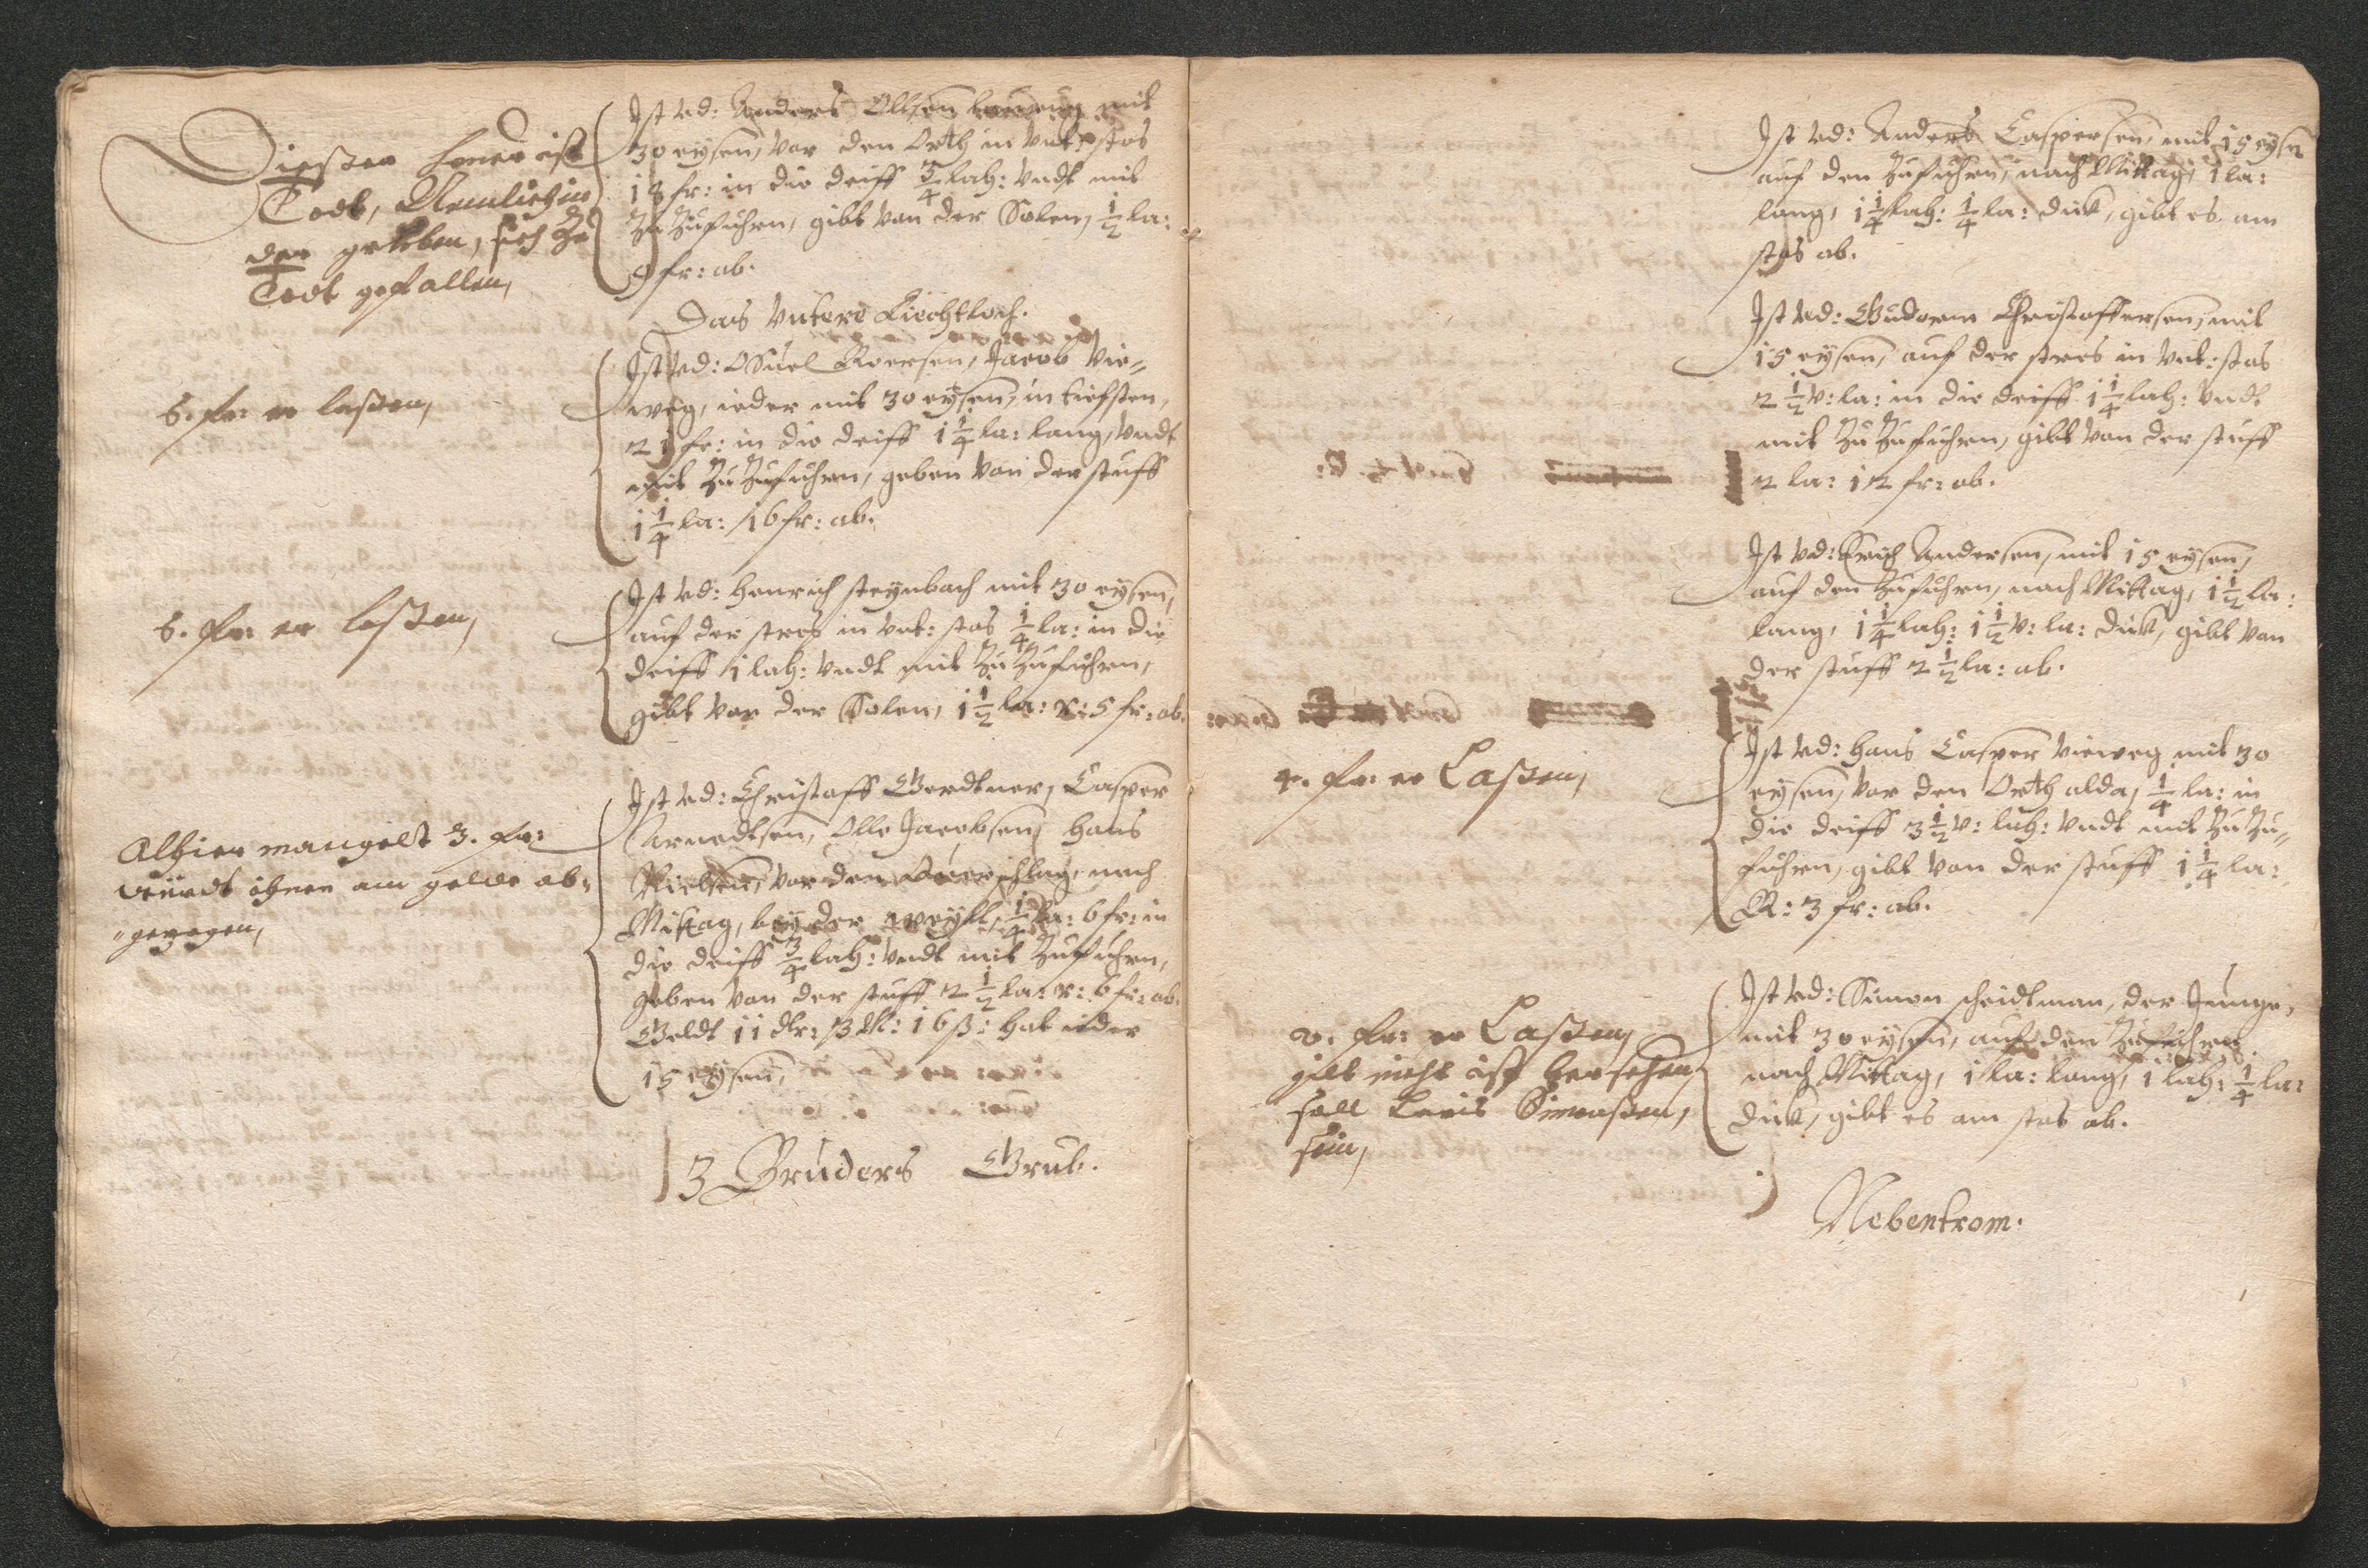 Dießer hauer ist
Todt, Nemlich in
der gruben, sich zu
Todt gefallen,
Ist vd: Anders Ollsen mit
30 eysen, vor den Orth in vnt: stos
18 fr: in die deiff 3/4 lah: vndt mit
Zu Zufuhren, gibt von der Solen, 1/2 la:
9 fr: ab.
Das Vntere Liechtloch.
6. fr: er laßen,
Ist vd: Osuel Roersen, Jacob Vie„
weg, ieder mit 30 eysen, in tiefsten,
21 fr: in die deiff 1 1/4 la: lang, vndt
mit Zu Zufuhren, geben von der stuff
1 1/4 la: 16 fr: ab.
6. fr: er laßen,
Ist vd: Henrich steynbach mit 30 eysen,
auf der stros in vnt: stos 1/4 la: in die
deiff 1 lah: vndt mit Zu Zufuhren,
gibt von der Solen, 1 1/2 la: r: 5 fr: ab.
Alhier mangelt 3. fr:
würdt ihnen am gelde ab„
„gezogen,
Ist vd: Christoff Gerdtner, Casper
Arnedtsen, Olle Jacobsen, Hans
Nielsen, vor den Querschlag, nach
Mittag, bey der 1/4 la: 6 fr: in
die deiff 3/4 lah: vndt mit Zufuhren,
geben von der stuff 2 1/2 la: r: 6 fr: ab.
Geldt 11 dlr: 3 M: 16 ß: hat ieder
15 eysen,
3 Bruders Grub.
Ist vd: Anders Caspersen, mit 15 eysen
auf den Zufuhren, nach Mittag, 1 la:
lang, 1 1/4 lah: 1/4 la: dick, gibt es am
stos ab.
Ist vd: Gudorm Christoffersen, mit
15 eysen, auf der stros in vnt: stos
2 1/2 v: la: in die deiff 1 1/4 lah: vndt
mit Zu Zufuhren, gibt von der stuff
2 la: 12 fr: ab.
Ist vd: Erich Andersen, mit 15 eysen,
auf den Zufuhren, nach Mittag, 1 1/2 la:
lang, 1 1/4 lah: 1 1/2 v: la: dick, gibt von
der stuff 2 1/2 la: ab.
4. fr: er Laßen,
Ist vd: Hans Casper Vieweg mit 30
eysen, vor den Orth alda, 1/4 la: in
die deiff 3 1/2 v: lah: vndt mit Zu Zu„
fuhren, gibt von der stuff 1 1/4 la:
R: 3 fr: ab.
fr: er Laßen,
gilt nicht ist versehen
soll Simonßen,
sein,
Ist vd: Simon scheidtman, der Junge,
mit 30 eysen, auf den Zufuhren
nach Mittag, 1 la: lang, 1 lah: 1/4 la:
dick, gibt es am stos ab.
Nebentrom.